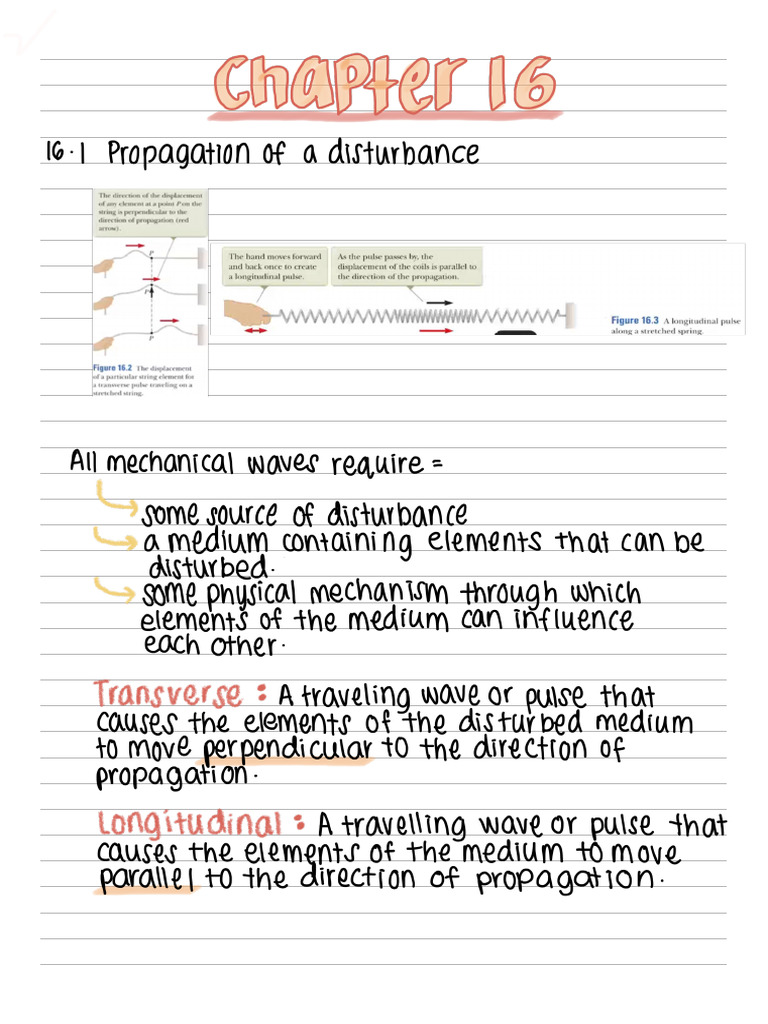 Chapter 16
16.1 Propagation of a disturbance
The direction of the displacement
of any element at a point P on the
string is perpendicular to the
direction of propagation (red
arrow).
P
P
P
Figure 16.2 The displacement
of a particular string element for
a transverse pulse traveling on a
stretched string.
The hand moves forward
and back once to create
a longitudinal pulse.
As the pulse passes by, the
displacement of the coils is parallel to
the direction of the propagation.
Figure 16.3 A longitudinal pulse
along a stretched spring.
All mechanical waves require =
some source of disturbance
a medium containing elements that can be
disturbed.
some physical mechanism through which
elements of the medium can influence
each other.
Transverse : A traveling wave or pulse that
causes the elements of the disturbed medium
to move perpendicular to the direction of
propagation.
Longitudinal : A travelling wave or pulse that
causes the elements of the medium to move
parallel to the direction of propagation.